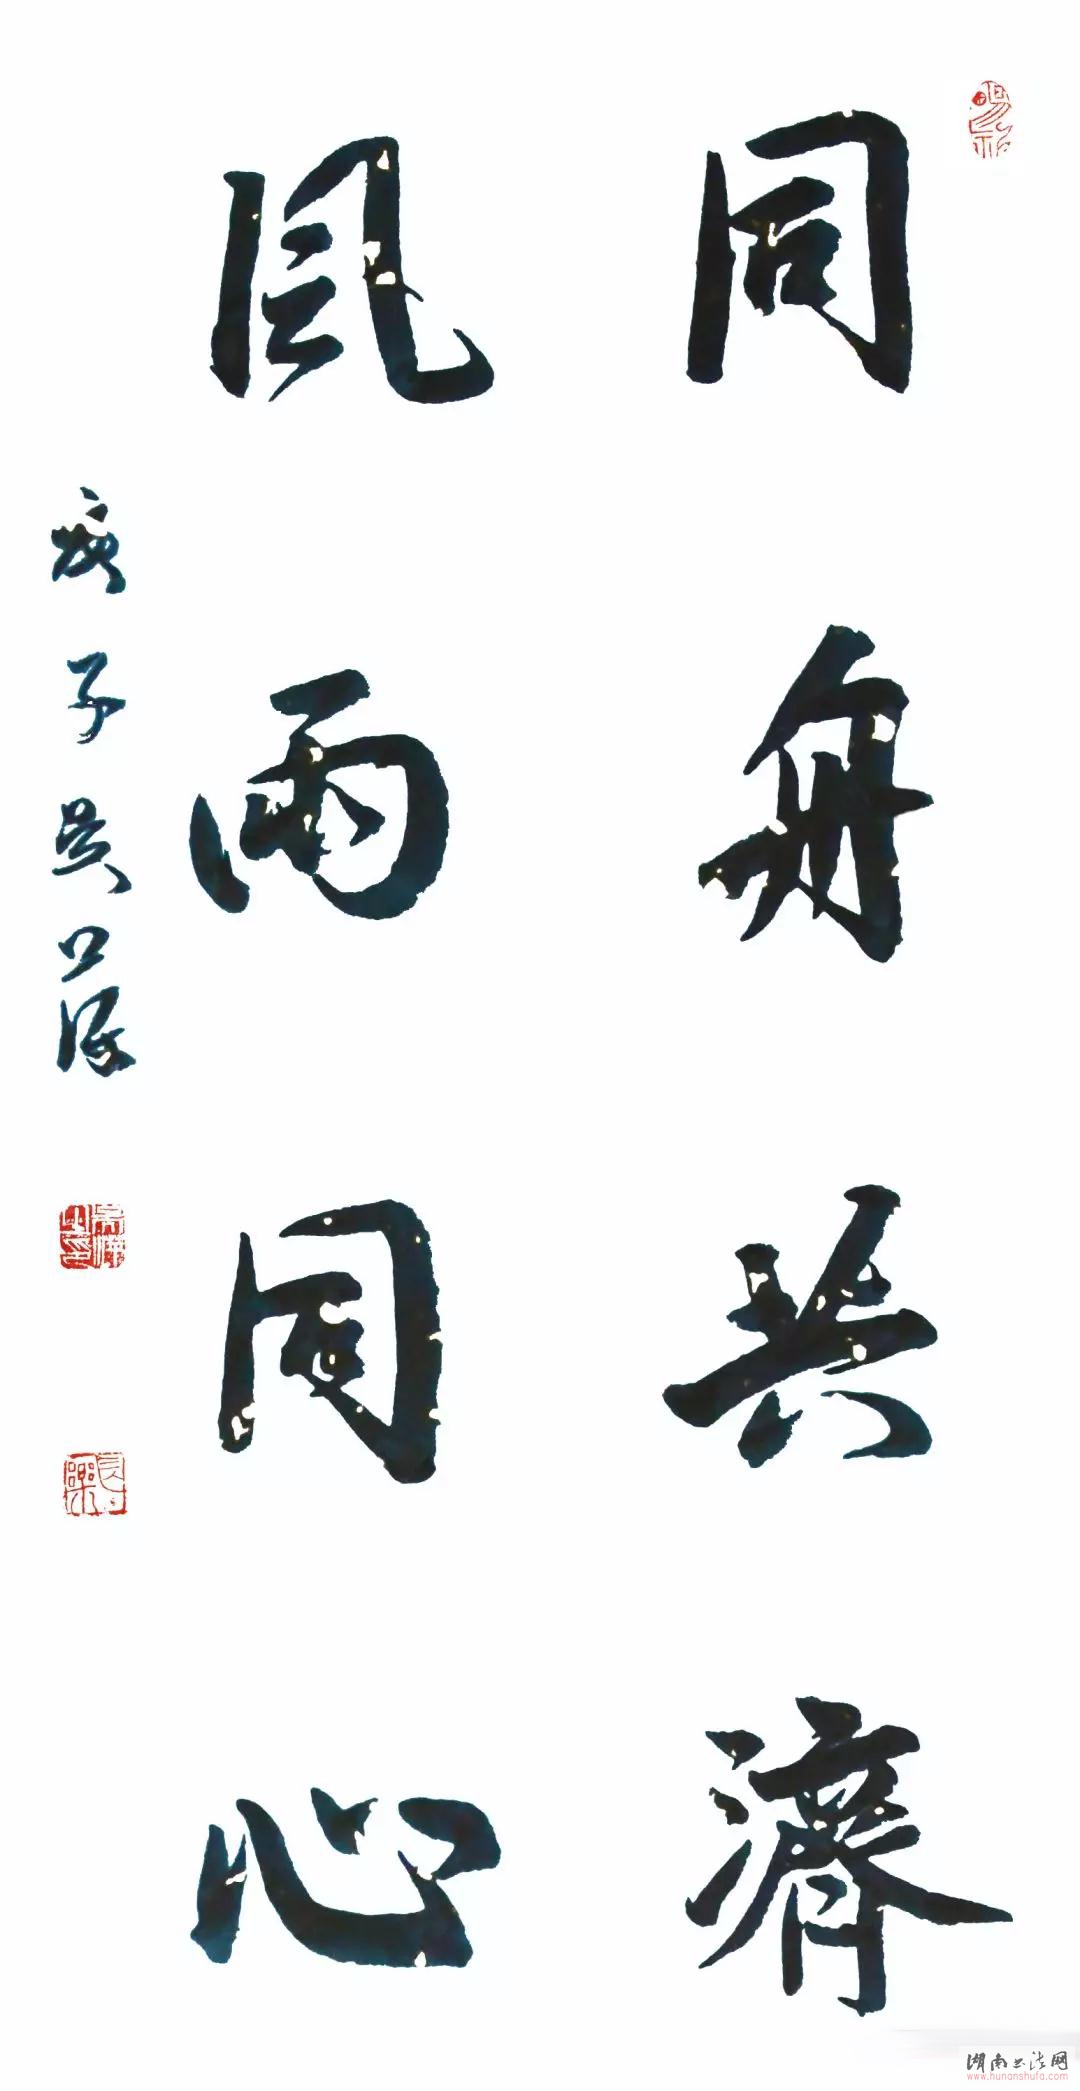 同舟共濟
風雨同心
庚子吴
湖南书法网
www.hunanshufa.com